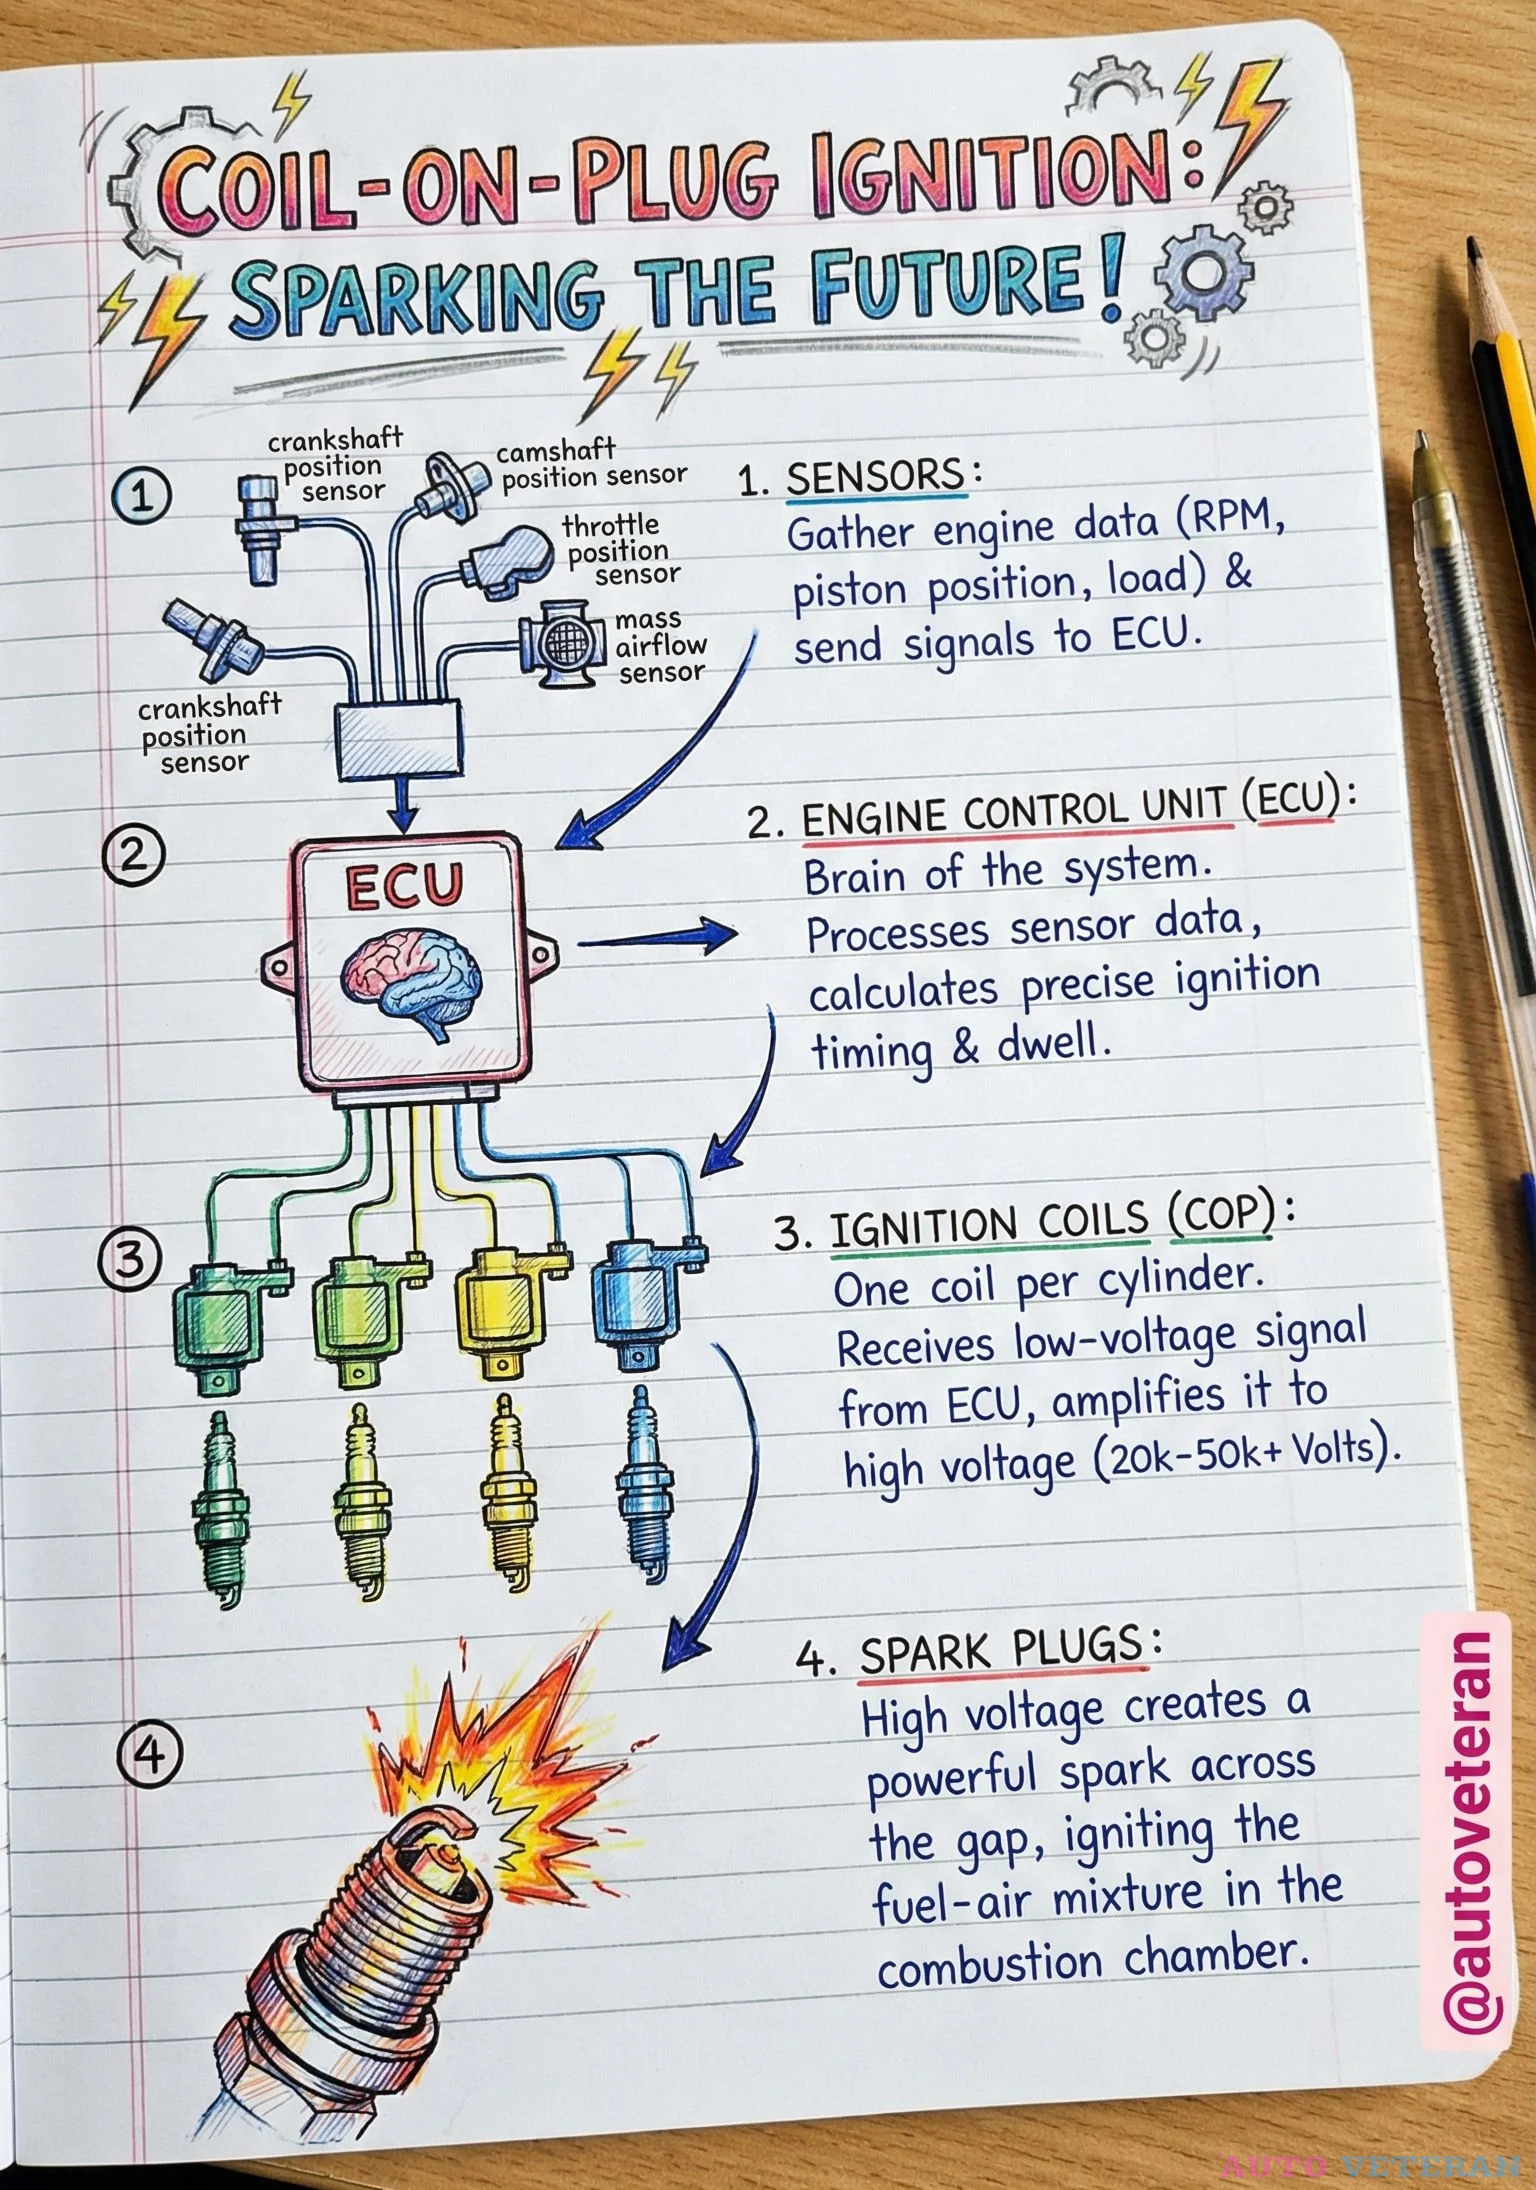 COIL-ON-PLUG IGNITION:
SPARKING THE FUTURE!
1
crankshaft
position
sensor
camshaft
position sensor
throttle
position
sensor
mass
airflow
sensor
crankshaft
position
sensor
1. SENSORS:
Gather engine data (RPM,
piston position, load) &
send signals to ECU.
2
ECU
2. ENGINE CONTROL UNIT (ECU):
Brain of the system.
Processes sensor data,
calculates precise ignition
timing & dwell.
3
3. IGNITION COILS (COP):
One coil per cylinder.
Receives low-voltage signal
from ECU, amplifies it to
high voltage (20k-50k+ Volts).
4
4. SPARK PLUGS:
High voltage creates a
powerful spark across
the gap, igniting the
fuel-air mixture in the
combustion chamber.
@autoveteran
AUTO VETERAN